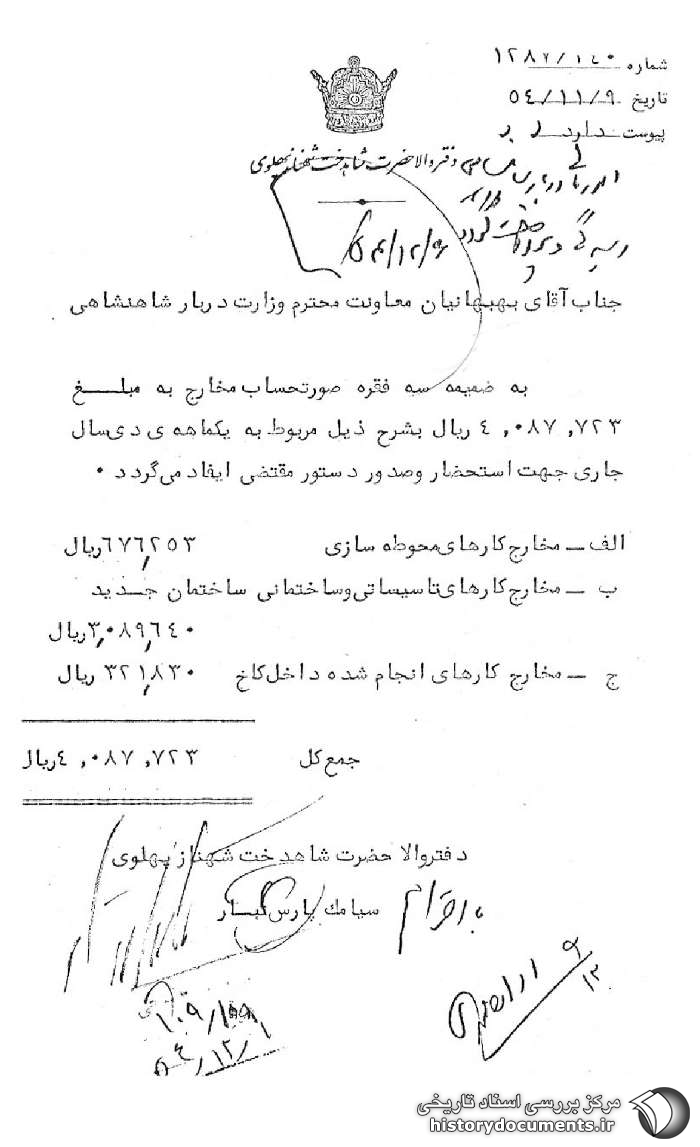 شماره ۱۲۸۷/۱۴۰
تاریخ ۵۴/۱۱/۹
پیوست دارد
دفتر والاحضرت شاهدخت شهناز پهلوی
۵۴/۱۲/۶
جناب آقای بهبهانیان معاونت محترم وزارت دربار شاهنشاهی
به ضمیمه سه فقره صورتحساب مخارج به مبلـــغ
۴,۰۸۷,۷۲۳ ریال بشرح ذیل مربوط به یکماهه ی دی سال
جاری جهت استحضار وصدور دستور مقتضی ایفاد می گردد ۰
الف ــ مخارج کارهای محوطه سازی ۶۷۶,۲۵۳ ریال
ب ــ مخارج کارهای تاسیساتی و ساختمانی ساختمان جــدید
۳,۰۸۹,۶۴۰ ریال
ج ــ مخارج کارهای انجام شده داخل کاخ ۳۲۱,۸۳۰ ریال
جمع کل ۴,۰۸۷,۷۲۳ ریال
دفتر والا حضرت شاهدخت شهناز پهلوی
سیامک پارس تبــار
۵۴/۱۲/۱
مرکز بررسی اسناد تاریخی
historydocuments.ir